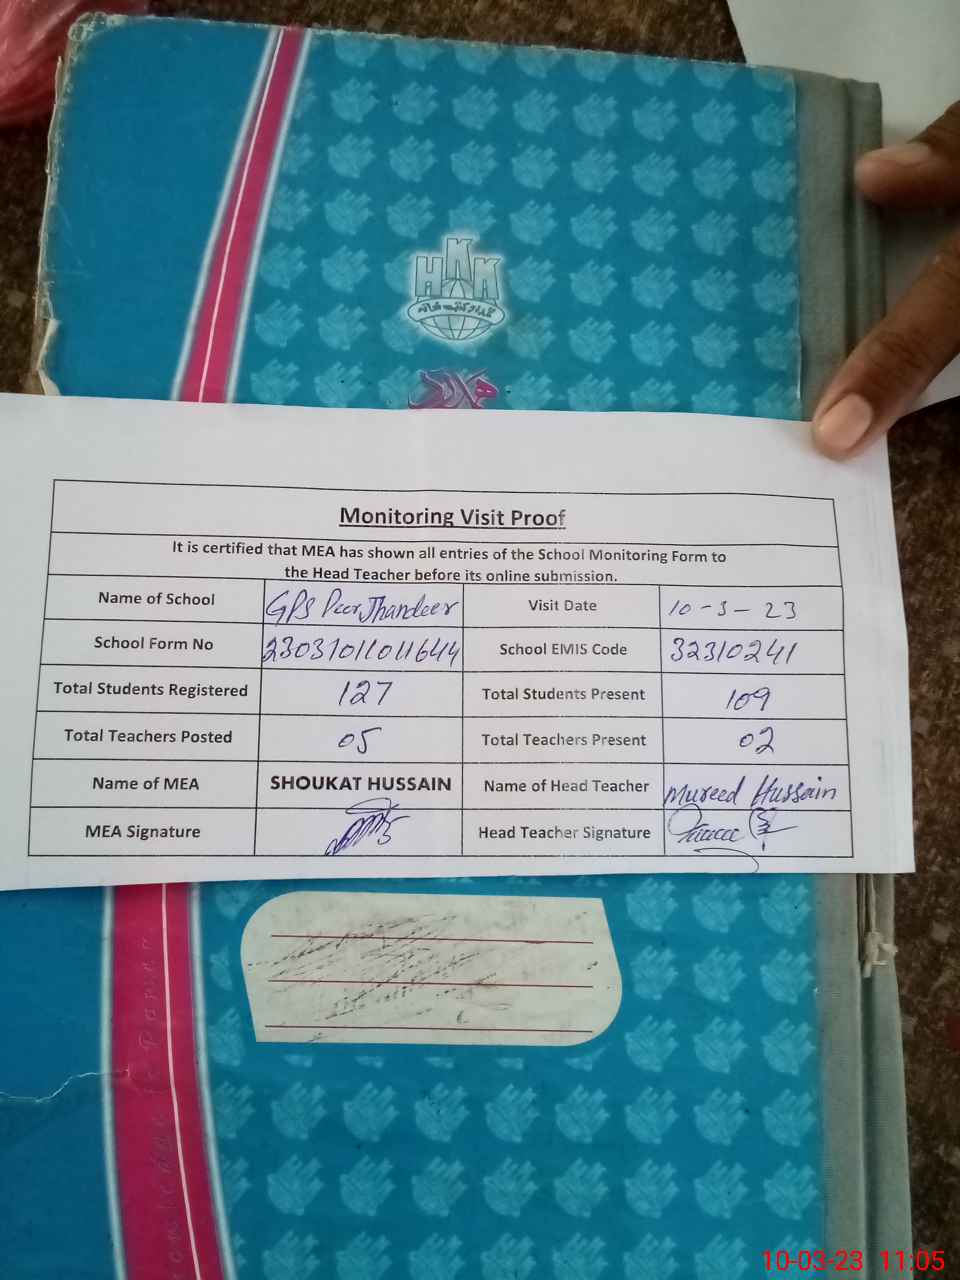 HKK
Monitoring Visit Proof
It is certified that MEA has shown all entries of the School Monitoring Form to
the Head Teacher before its online submission.
Name of School GPS Peer Jhandeer Visit Date 10-3-23
School Form No 23031011011644 School EMIS Code 32310241
Total Students Registered 127 Total Students Present 109
Total Teachers Posted 05 Total Teachers Present 02
Name of MEA SHOUKAT HUSSAIN Name of Head Teacher Mureed Hussain
MEA Signature Head Teacher Signature
10-03-23 11:05